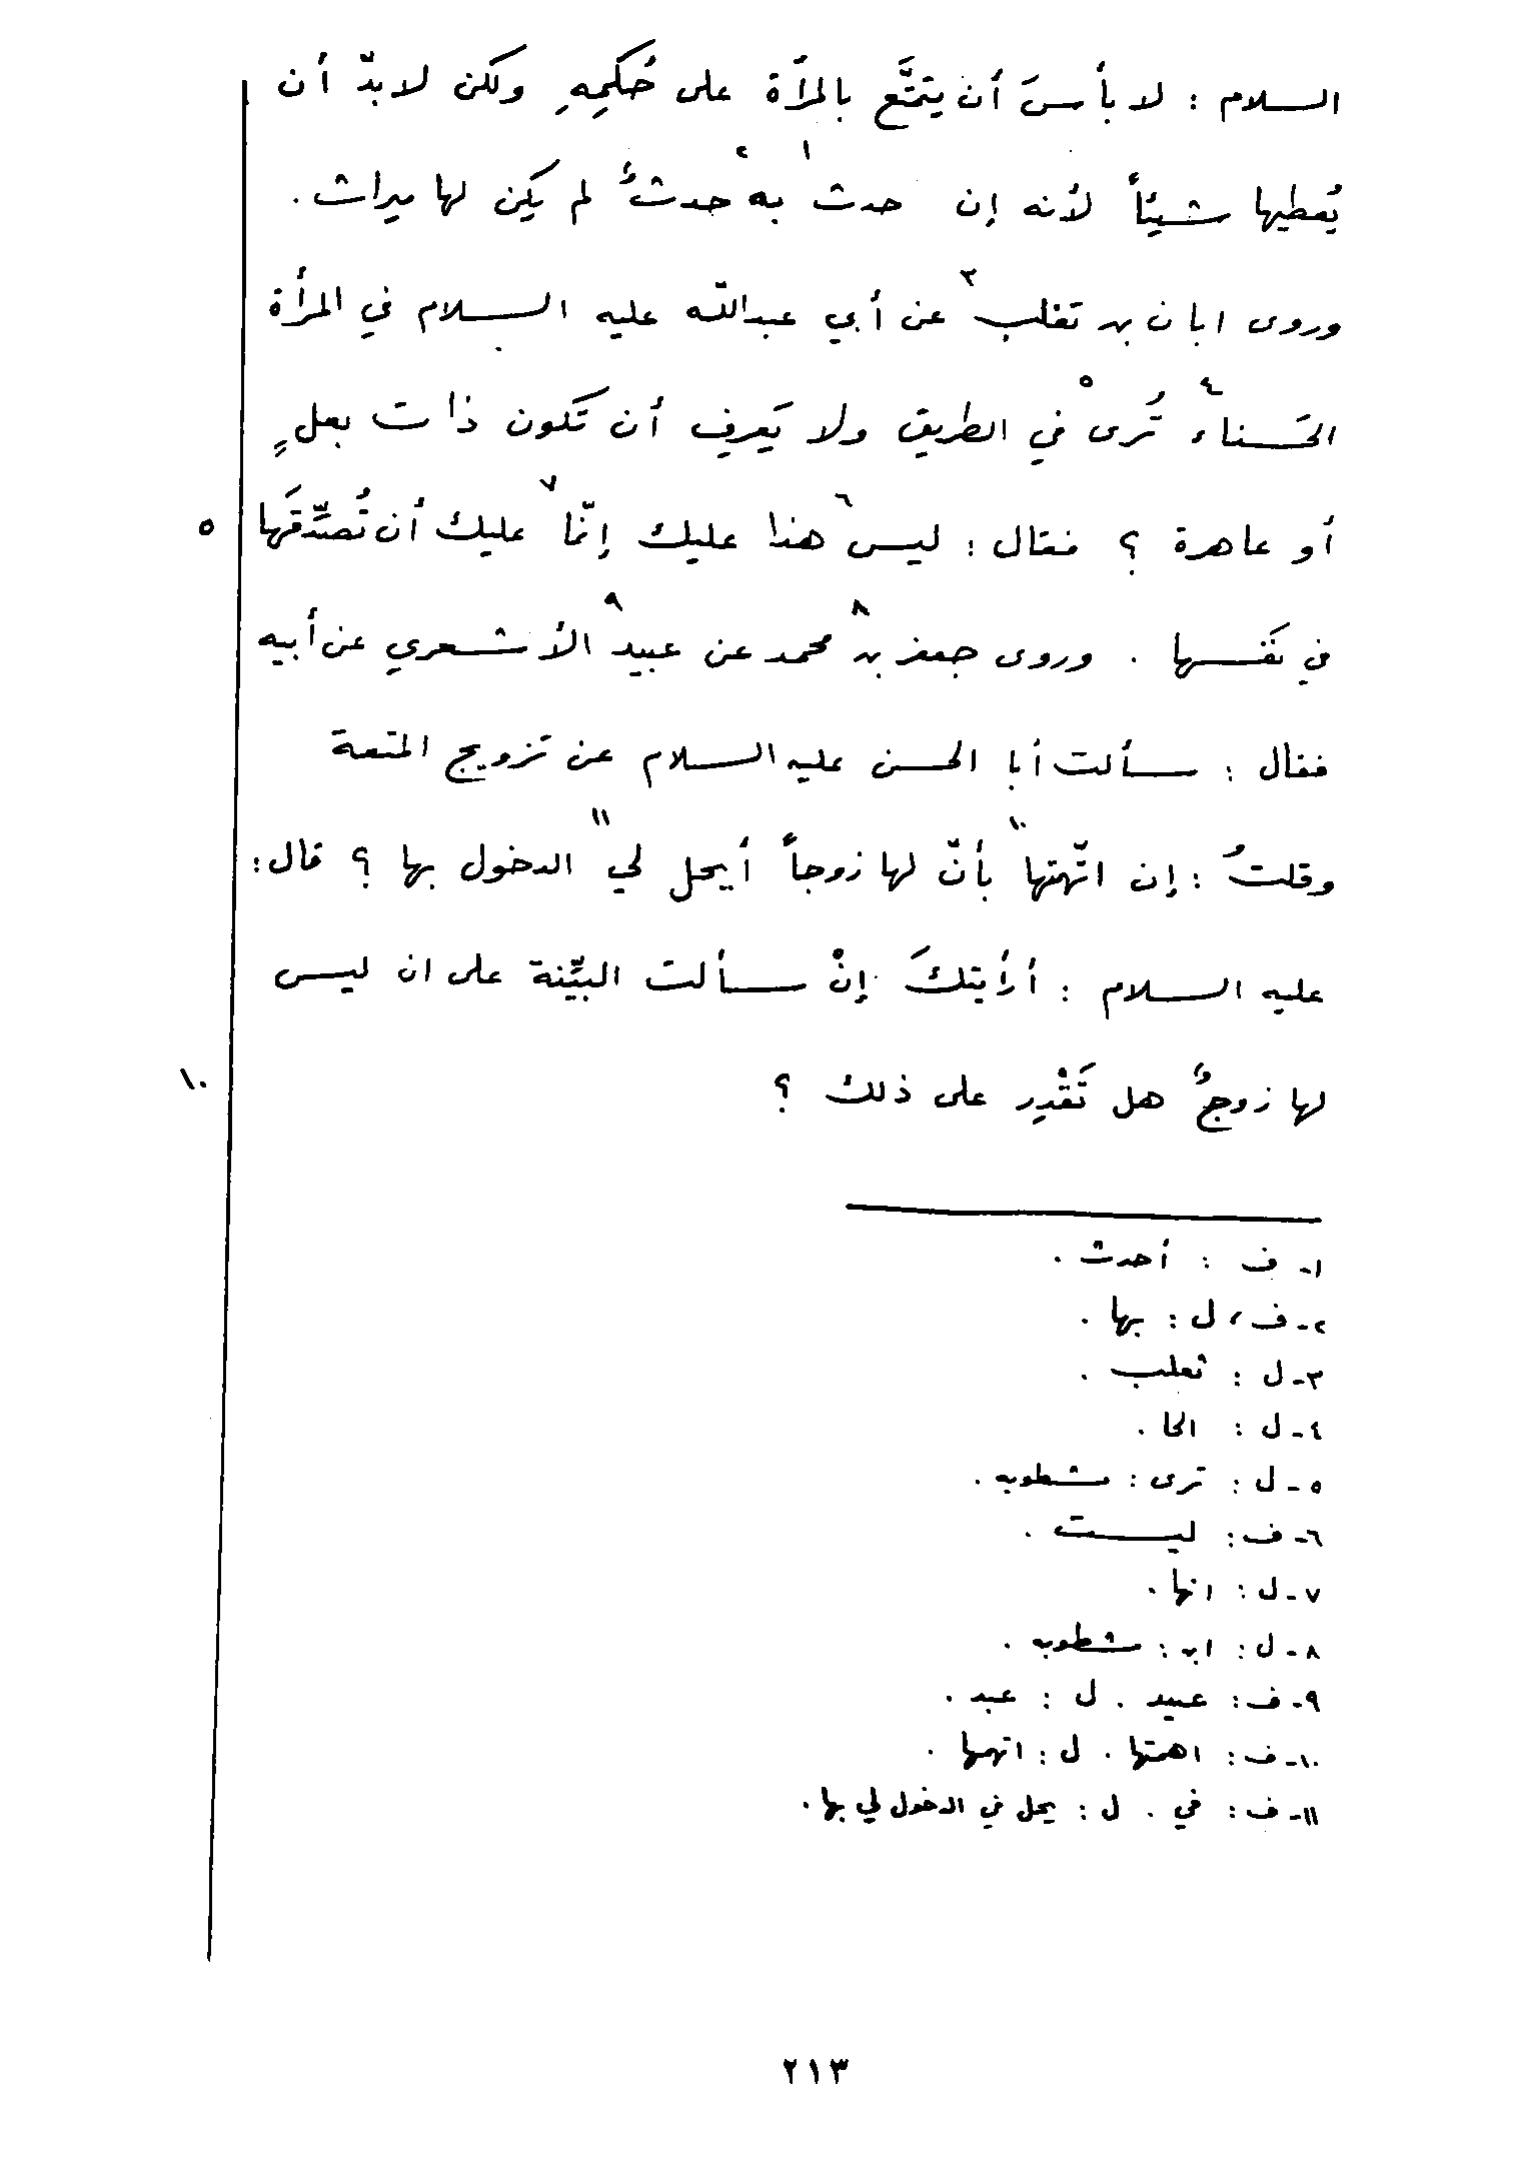 السلام : لا بأسَ أن يتمتَّع بالمرأة على حُكمِهِ ولكن لا بدّ أن
يُعطيها شيئاً لأنه إن حدث ١ به ٢ حدثٌ لم يكن لها ميراث .
وروى ابان بن تغلب ٣ عن أبي عبدالله عليه السلام في المرأة
الحَسناء ٤ تُرى ٥ في الطريق ولا يَعرِف أن تَكون ذات بعلٍ
أو عاهرة ؟ فقال : ليس ٦ هذا عليك إنّما ٧ عليك أن تُصَدِّقَها ٥
في نَفسها . وروى جعفر بن ٨ محمد عن عبيد ٩ الأشعري عن أبيه
فقال : سألت أبا الحسن عليه السلام عن تزويج المتعة
وقلتُ : إن اتّهمتها ١٠ بأنّ لها زوجاً أيحل لي ١١ الدخول بها ؟ قال :
عليه السلام : أرأيتكَ إنْ سألت البيِّنة على ان ليس
لها زوجٌ هل تَقْدِر على ذلك ؟ ١٠
١- ف : أحدث .
٢- ف ، ل : بها .
٣- ل : ثعلب .
٤- ل : الحا .
٥- ل : ترى : مشطوبه .
٦- ف : ليست .
٧- ل : انها .
٨- ل : ابن : مشطوبه .
٩- ف : عبيد . ل : عبد .
١٠- ف : اهمتها . ل : اتهمها .
١١- ف : في . ل : يحل في الدخول لي بها .
٢١٣